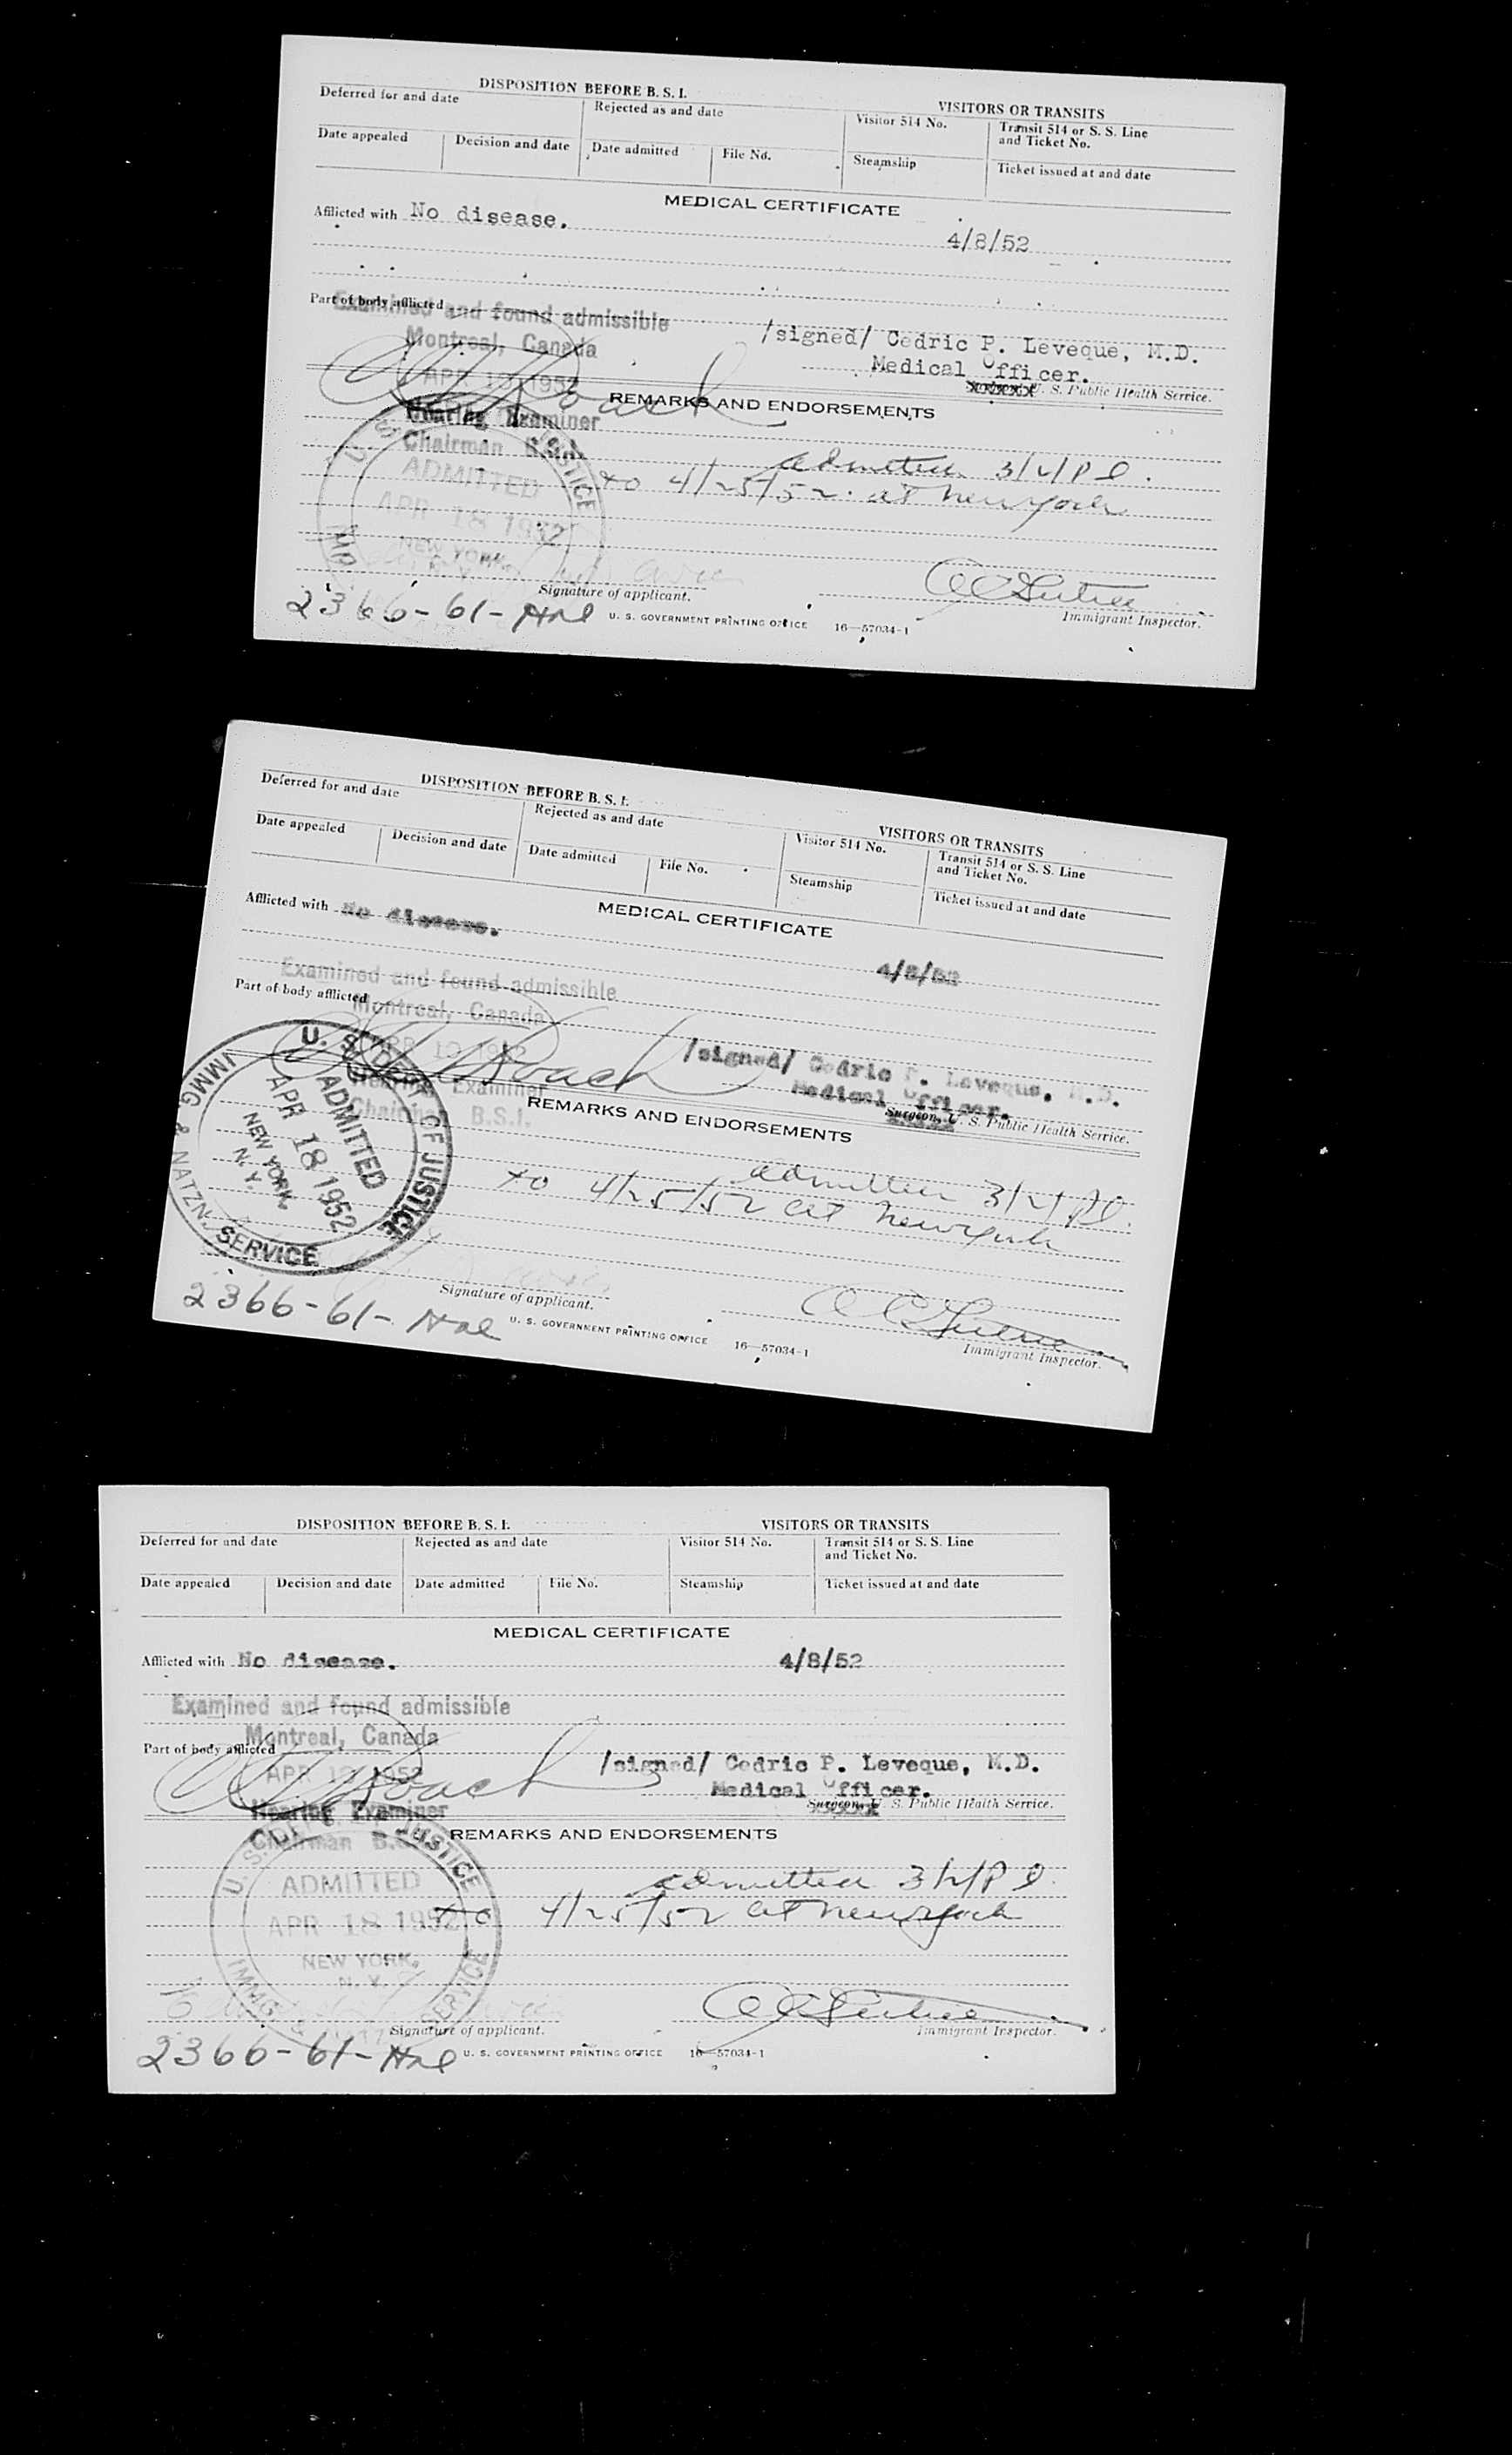 DISPOSITION BEFORE B. S. I.
VISITORS OR TRANSITS
Deferred for and date
Rejected as and date
Visitor 514 No.
Transit 514 or S. S. Line
and Ticket No.
Date appealed
Decision and date
Date admitted
File No.
Steamship
Ticket issued at and date
MEDICAL CERTIFICATE
Afflicted with No disease.
4/8/52
Part of body afflicted
Examined and found admissible
Montreal, Canada
APR 1952
/signed/ Cedric P. Leveque, M.D.
Medical Officer.
U. S. Public Health Service.
Hearing Examiner
Chairman B.S.I.
REMARKS AND ENDORSEMENTS
admitted 3/2/
to 4/25/52. at New York
U. S. JUSTICE
ADMITTED
APR 18 1952
NEW YORK,
Signature of applicant.
Immigrant Inspector.
2366-61-
U. S. GOVERNMENT PRINTING OFFICE 16—57034-1
DISPOSITION BEFORE B. S. I.
VISITORS OR TRANSITS
Deferred for and date
Rejected as and date
Visitor 514 No.
Transit 514 or S. S. Line
and Ticket No.
Date appealed
Decision and date
Date admitted
File No.
Steamship
Ticket issued at and date
MEDICAL CERTIFICATE
Afflicted with No disease.
4/8/52
Examined and found admissible
Part of body afflicted
Montreal, Canada
APR 1952
/signed/ Cedric P. Leveque, M.D.
Medical Officer.
Surgeon, U. S. Public Health Service.
Hearing Examiner
Chairman B.S.I.
REMARKS AND ENDORSEMENTS
admitted 3/2/
to 4/25/52 at New York
U. S. DEPT. OF JUSTICE
ADMITTED
APR 18 1952
NEW YORK,
N. Y.
IMMG. & NATZN. SERVICE
Signature of applicant.
Immigrant Inspector.
2366-61-
U. S. GOVERNMENT PRINTING OFFICE 16—57034-1
DISPOSITION BEFORE B. S. I.
VISITORS OR TRANSITS
Deferred for and date
Rejected as and date
Visitor 514 No.
Transit 514 or S. S. Line
and Ticket No.
Date appealed
Decision and date
Date admitted
File No.
Steamship
Ticket issued at and date
MEDICAL CERTIFICATE
Afflicted with No disease.
4/8/52
Examined and found admissible
Montreal, Canada
Part of body afflicted
APR 1952
/signed/ Cedric P. Leveque, M.D.
Medical Officer.
Surgeon, U. S. Public Health Service.
Hearing Examiner
Chairman B.S.I.
REMARKS AND ENDORSEMENTS
admitted 3/2/
to 4/25/52 at New York
U. S. DEPT. JUSTICE
ADMITTED
APR 18 1952
NEW YORK,
N. Y.
IMMG. & SERVICE
Signature of applicant.
Immigrant Inspector.
2366-61-
U. S. GOVERNMENT PRINTING OFFICE 16—57034-1